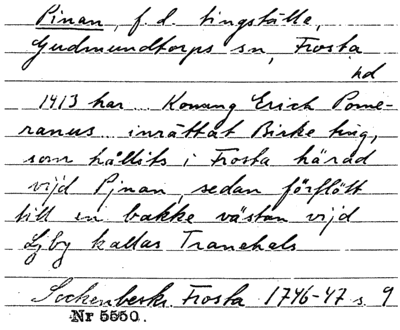 Pinan, f. d. tingställe,
Gudmundtorps sn, Frosta
hd
1413 har... Konung Erich Pome-
ranus... inrättat Birke ting,
som hållits i Frosta härad
vijd Pjnan, sedan förflött
till en backe västan vijd
Ljby kallas Tranehals
Sockenbeskr. Frosta 1746-47 s. 9
Nr 5550.